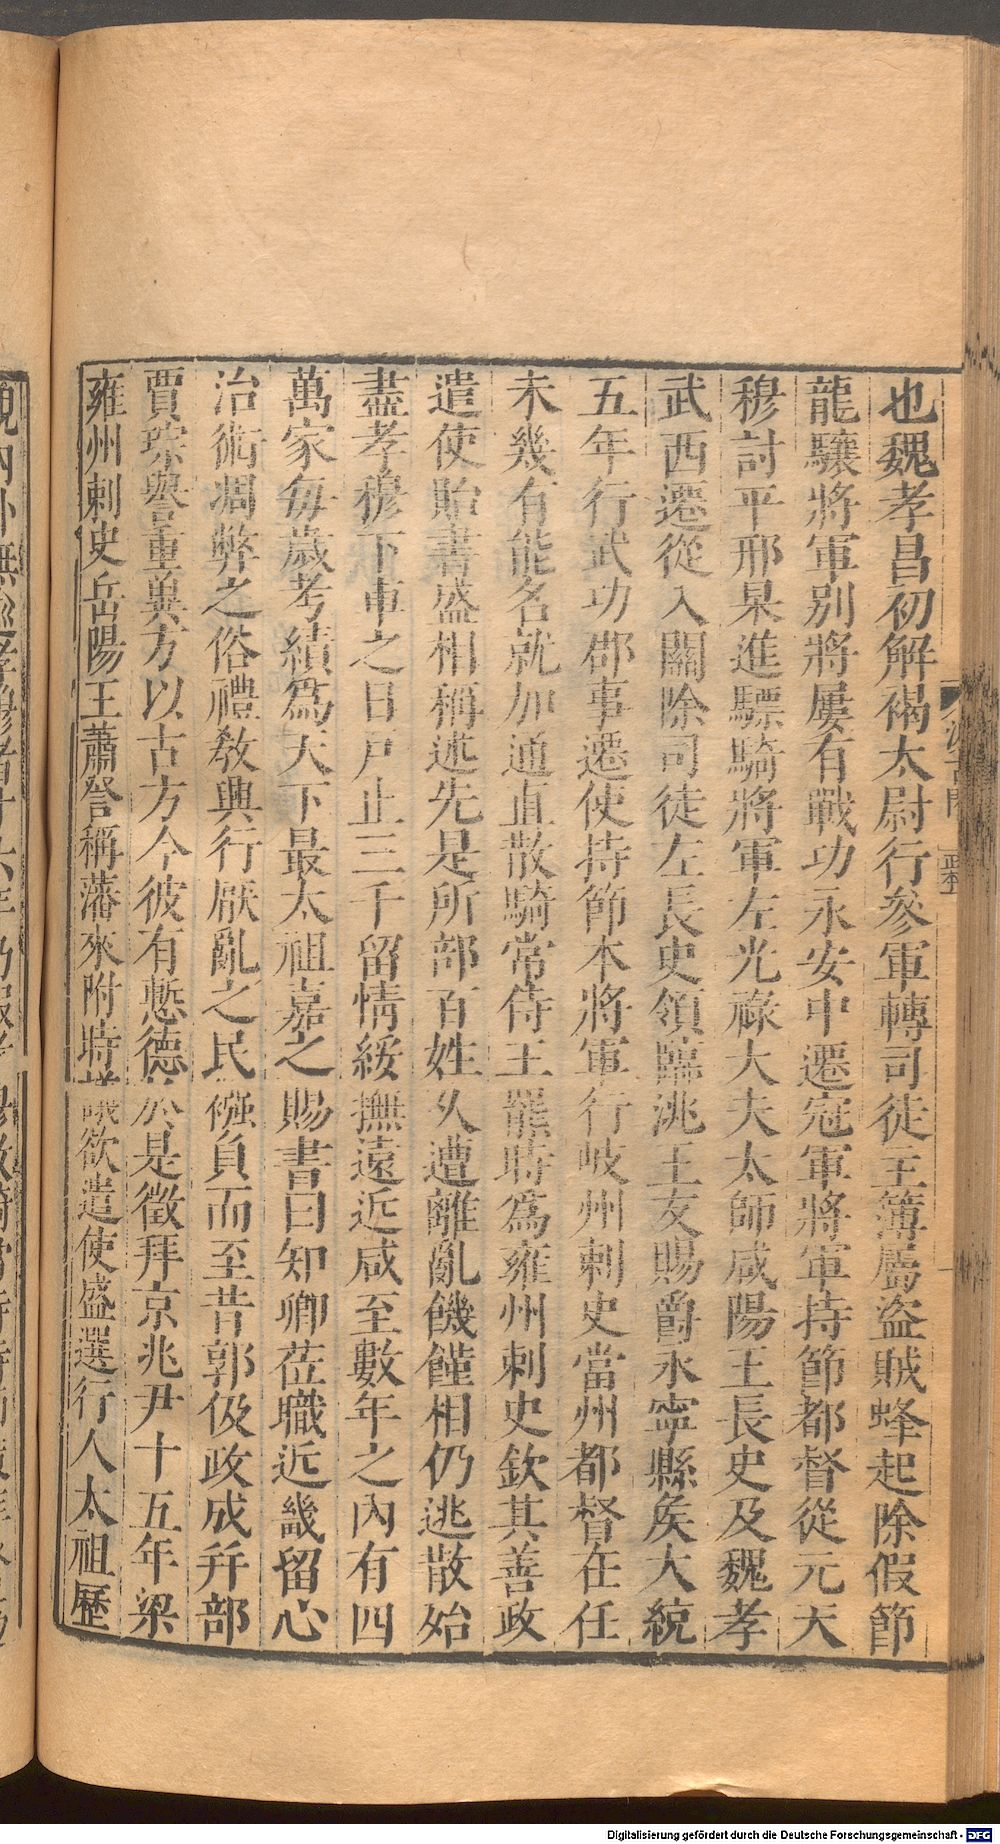 也魏孝昌初解褐太尉行參軍轉司徒主簿屬盜賊蜂起除假節
龍驤將軍別將屢有戰功永安中遷冠軍將軍持節都督從元天
穆討平邢杲進驃騎將軍左光祿大夫太師咸陽王長史及魏孝
武西遷從入關除司徒左長史領臨洮王友賜爵永寧縣矦大統
五年行武功郡事遷使持節本將軍行岐州刺史當州都督在任
未幾有能名就加通直散騎常侍王羆時爲雍州刺史欽其善政
遣使貽書盛相稱述先是所部百姓久遭離亂饑饉相仍逃散始
盡孝穆下車之日戸止三千留情綏撫遠近咸至數年之內有四
萬家每歲考績爲天下最太祖嘉之賜書曰知卿莅職近畿留心
治術凋弊之俗禮敎興行厥亂之民襁負而至昔郭伋政成幷部
賈琮譽重冀方以古方今彼有慙德於是徵拜京兆尹十五年梁
雍州刺史岳陽王蕭詧稱藩來附時議欲遣使盛選行人太祖歷
汲古閣
正本
Digitalisierung gefördert durch die Deutsche Forschungsgemeinschaft - DFG